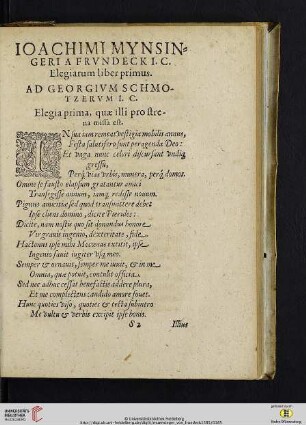 IOACHIMI MYNSIN-
GERI A FRVNDECK I. C.
Elegiarum liber primus.
AD GEORGIVM SCHMO-
TZERVM I. C.
Elegia prima, quæ illi pro stre-
na missa est.
IN sua iam remeat vestigia mobilis annus,
Festa salutifero sunt peragenda Deo:
Et vaga nunc celeri discursant vndiq;
gressu,
Perq; vias vrbis, munera, perq; domos.
Omnes se fausto elapsum gratantur amici
Transgresse annum, iamq; redisse nouum.
Pignus amicitiæ sed quod transmittere debet
Ipse cliens domino, dicite Pierides:
Dicite, nam nostis quo sit donandus honore
Vir grauis ingenio, dexteritate, fide.
Hactenus ipse mihi Mecœnas extitit, ipse
Ingenio fauit iugiter vsq; meo.
Semper & ornauit, semper me iuuit, & in me
Omnia, quæ potuit, contulit officia.
Sed nec adhuc cessat benefactis addere plura,
Et me complectitur candido amore fouet.
Hunc quoties viso, quoties & tecta subintro
Me vultu & verbis excipit ipse bonis.
S 2 Illius
© Universitätsbibliothek Heidelberg